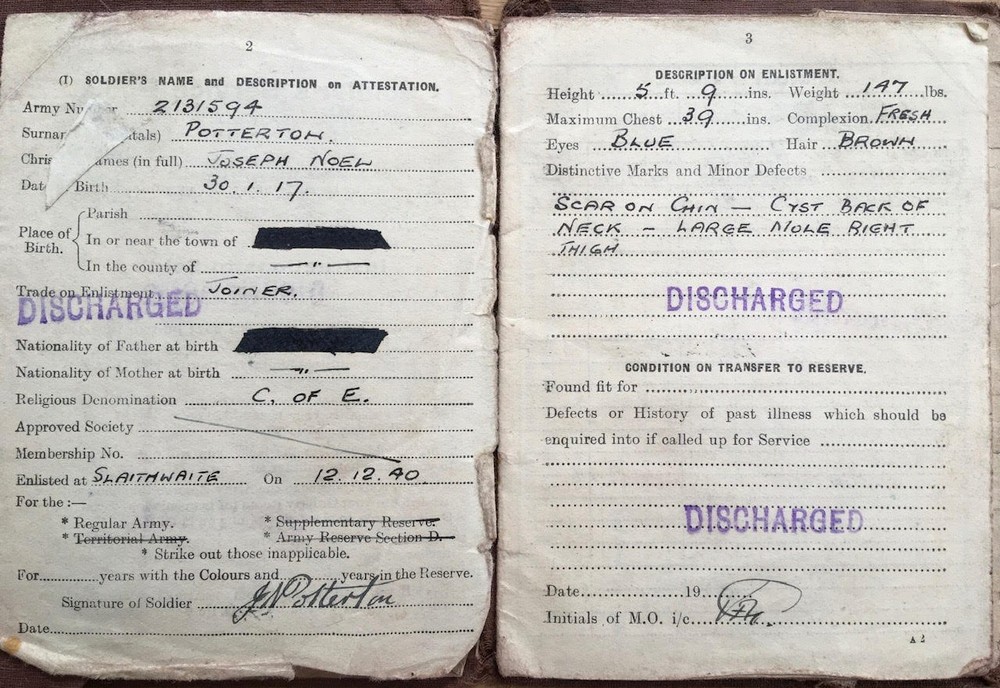 2
(I) SOLDIER'S NAME and DESCRIPTION on ATTESTATION.
Army Nu er 2131594
Surnam tals) POTTERTON
Chris ames (in full) JOSEPH NOEL
Dat Birth 30.1.17.
Parish
Place of Birth.
In or near the town of
In the county of — " —
Trade on Enlistment JOINER.
DISCHARGED
Nationality of Father at birth
Nationality of Mother at birth — " —
Religious Denomination C. OF E.
Approved Society
Membership No.
Enlisted at SLAITHWAITE On 12.12.40
For the :—
* Regular Army. * Supplementary Reserve.
* Territorial Army. * Army Reserve Section D.
* Strike out those inapplicable.
For years with the Colours and years in the Reserve.
Signature of Soldier J N Potterton
Date
3
DESCRIPTION ON ENLISTMENT.
Height 5 ft. 9 ins. Weight 147 lbs.
Maximum Chest 39 ins. Complexion FRESH
Eyes BLUE Hair BROWN
Distinctive Marks and Minor Defects
SCAR ON CHIN — CYST BACK OF
NECK — LARGE MOLE RIGHT
THIGH
DISCHARGED
CONDITION ON TRANSFER TO RESERVE.
Found fit for
Defects or History of past illness which should be
enquired into if called up for Service
DISCHARGED
Date 19
Initials of M.O. i/c
A 2